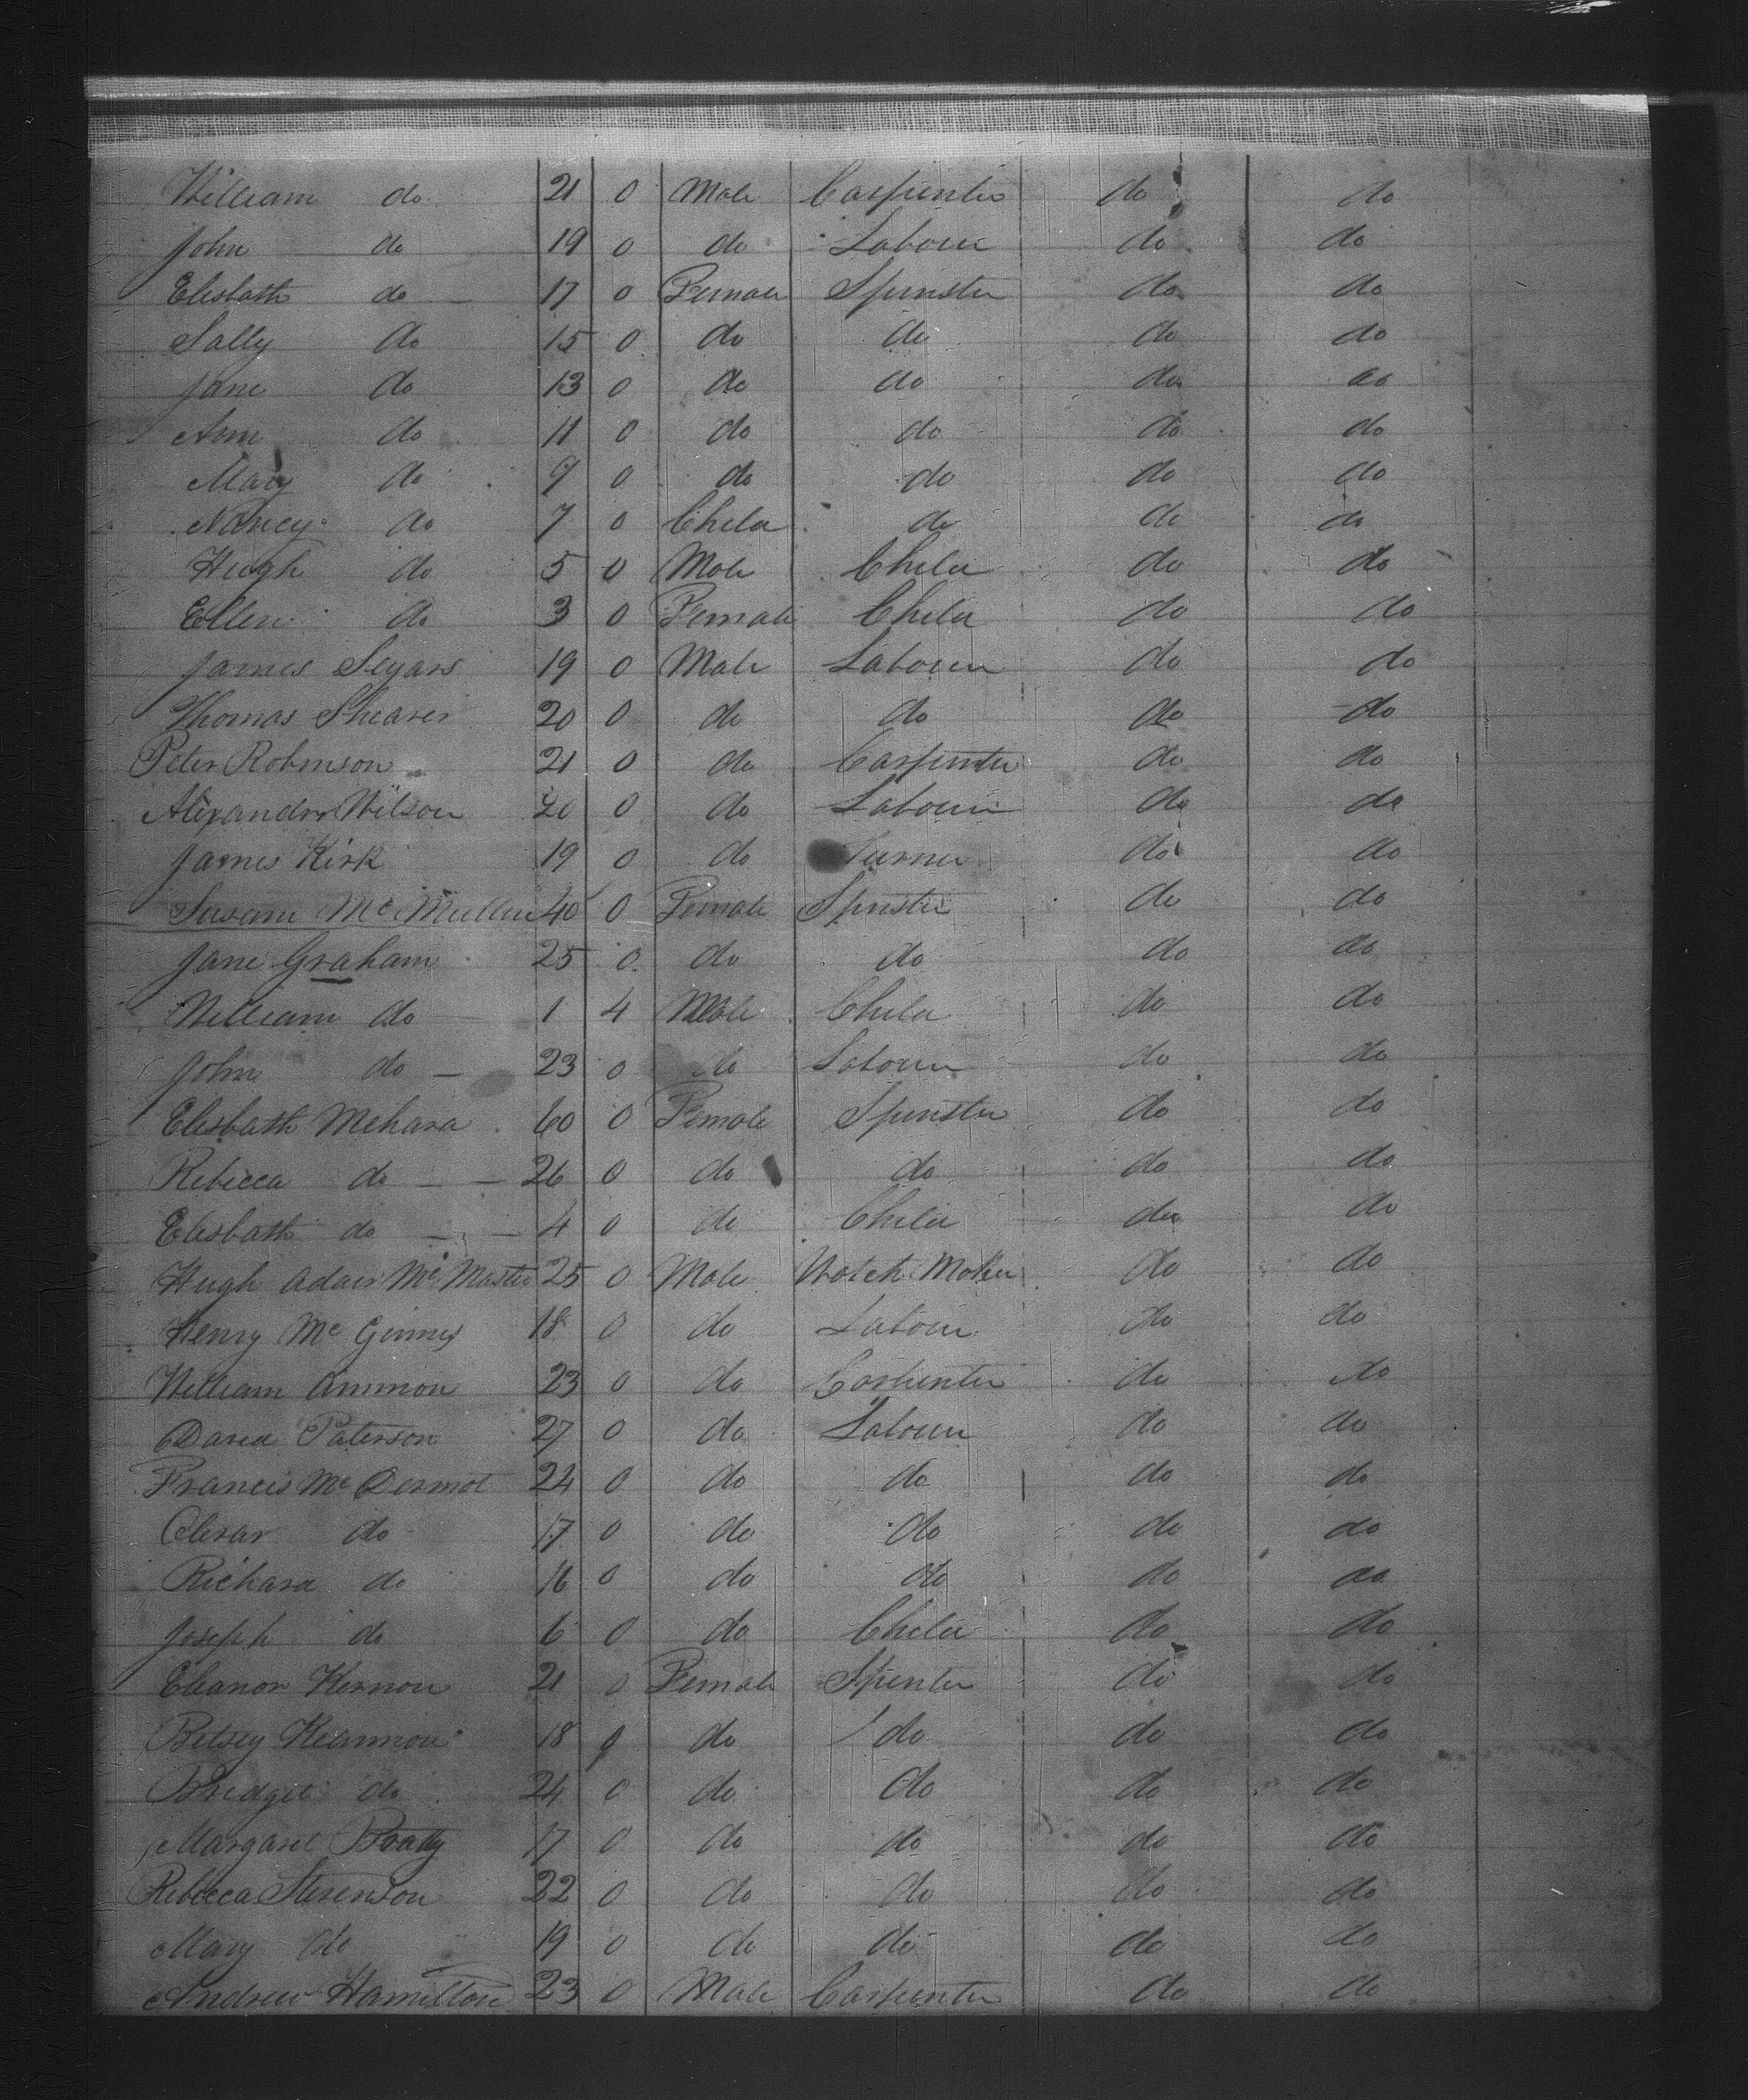 William do 21 0 Male Carpenter do do
John do 19 0 do Labour do do
Elisbath do — 17 0 Female Spinster do do
Sally do 15 0 do do do do
Jane do 13 0 do do do do
Ann do 11 0 do do do do
Mary do 9 0 do do do do
Nancy do 7 0 Child do do do
Hugh do 5 0 Male Child do do
Ellen do 3 0 Female Child do do
James Segars 19 0 Male Labour do do
Thomas Shearer 20 0 do do do do
Peter Robinson 21 0 do Carpenter do do
Alexander Wilson 20 0 do Labour do do
James Kirk 19 0 do Turner do do
Susann Mc Mullen 40 0 Female Spinster do do
Jane Graham 25 0 do do do do
William do 1 4 Male Child do do
John do — 23 0 do Labour do do
Elisbath Mehara 60 0 Female Spinster do do
Rebecca do — — 26 0 do do do do
Elisbath do — — 4 0 do Child do do
Hugh Adair Mc Master 25 0 Male Watch Maker do do
Henry Mc Ginnis 18 0 do Labour do do
William Ammon 23 0 do Carpenter do do
David Paterson 27 0 do Labour do do
Francis Mc Dermot 24 0 do do do do
do 17 0 do do do do
Richard do 16 0 do do do do
Joseph do 6 0 do Child do do
Eleanor Kernon 21 0 Female Spinster do do
Betsey Keannon 18 0 do do do do
Bridget do 24 0 do do do do
Margaret Brady 17 0 do do do do
Rebecca Stevenson 22 0 do do do do
Mary do 19 0 do do do do
Andrew Hamilton 23 0 Male Carpenter do do